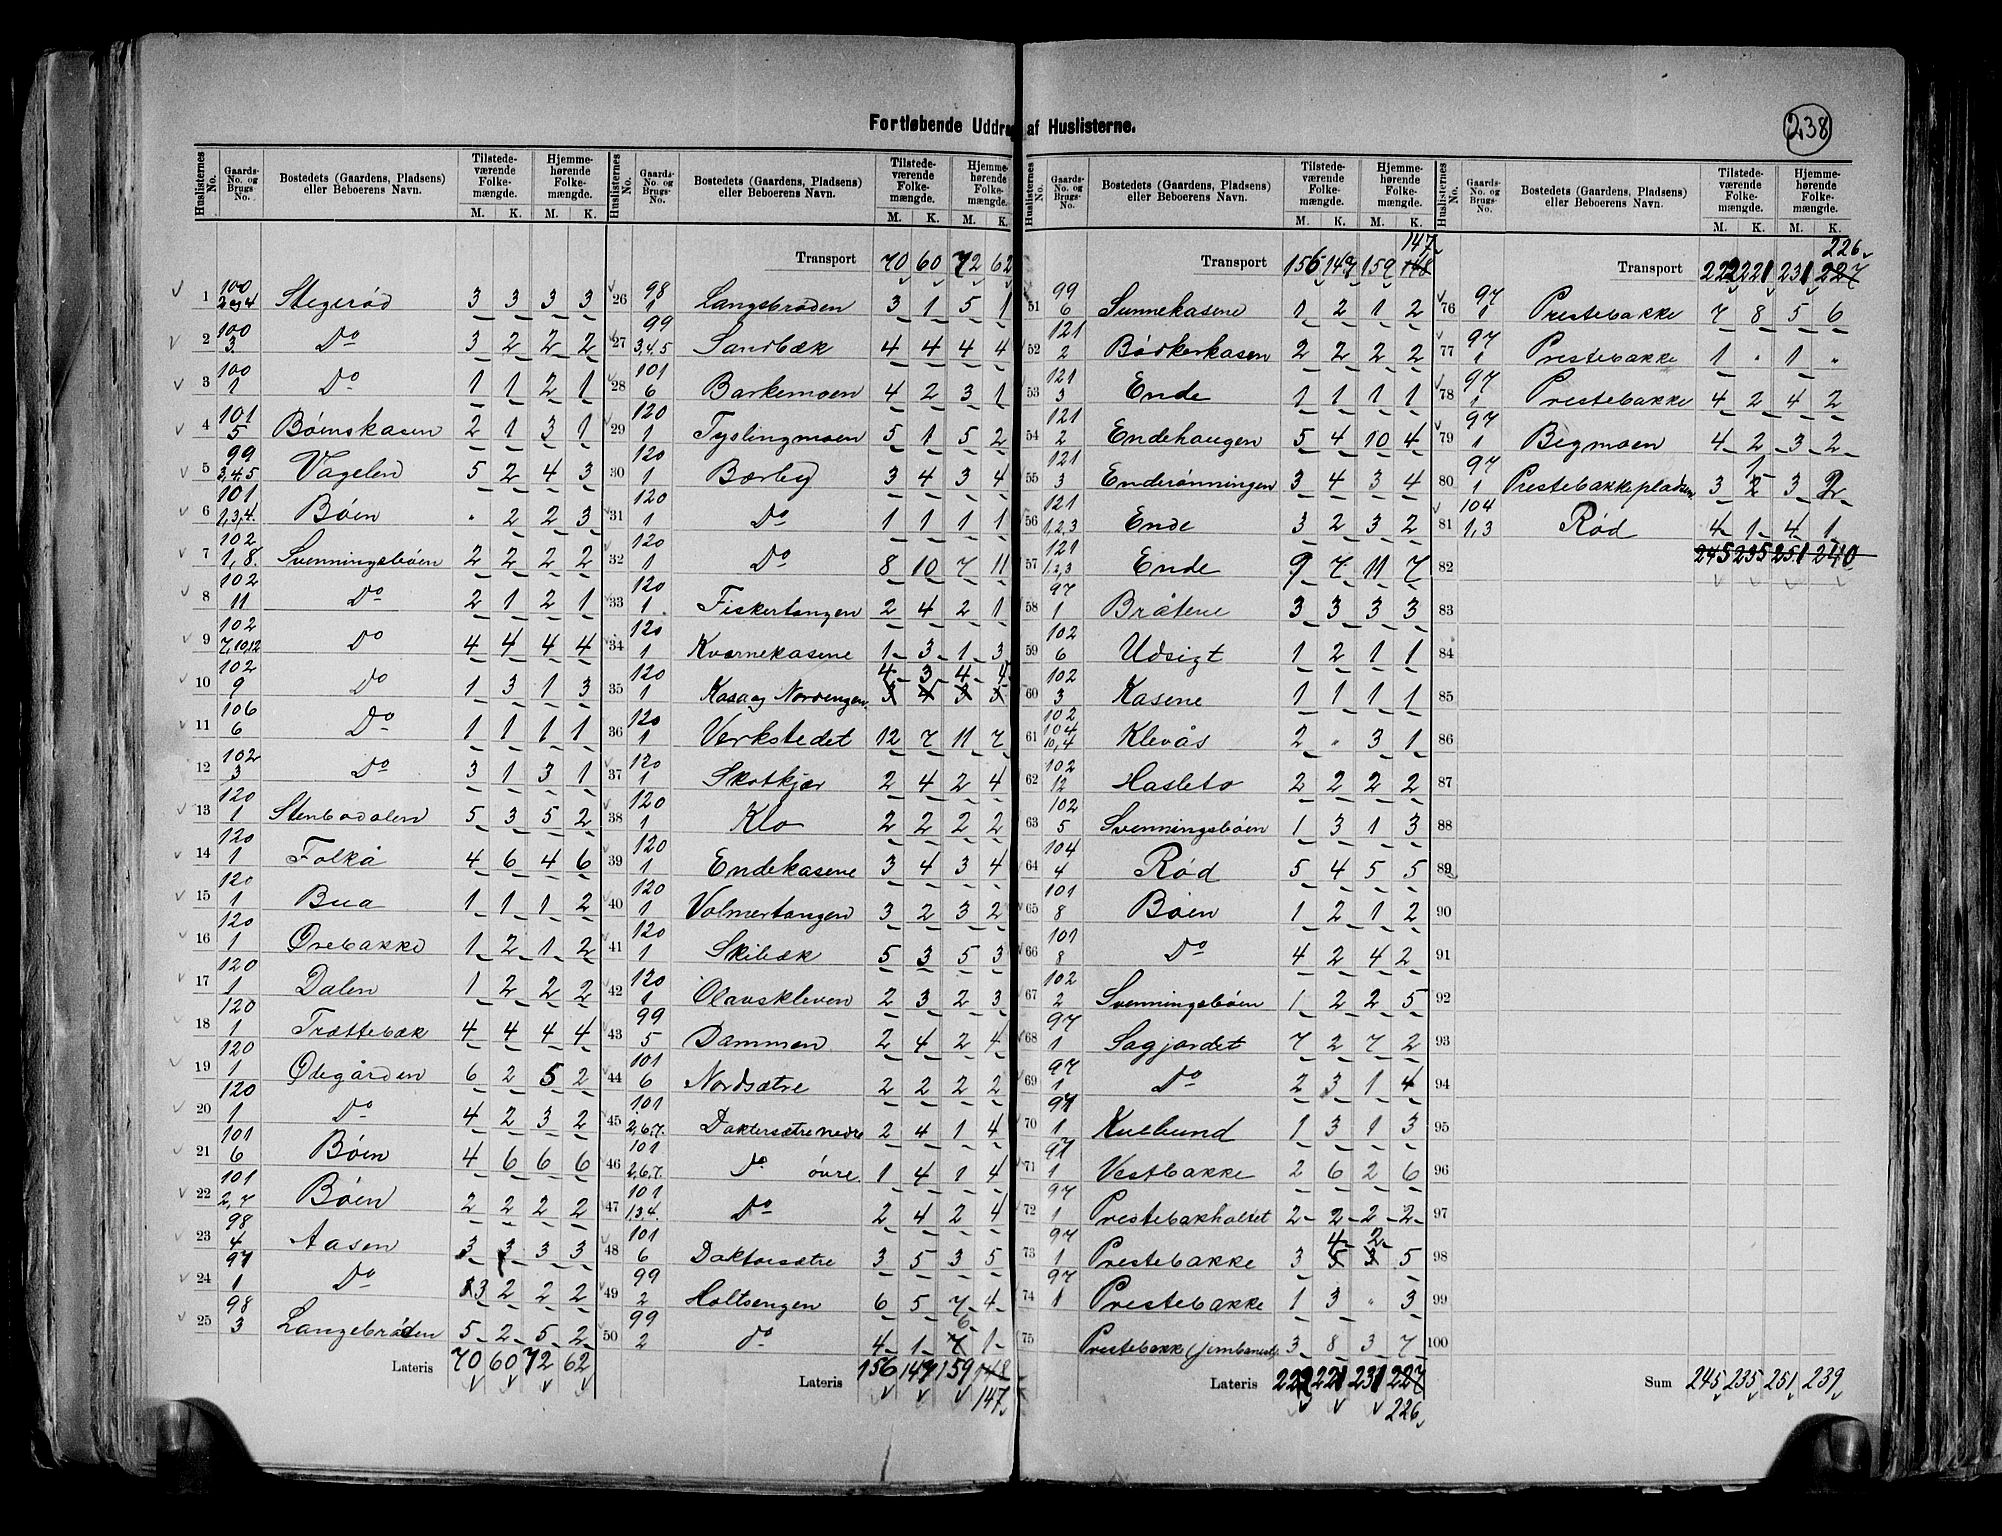 238
Fortløbende Uddr af Huslisterne.
Huslisternes No. Gaards-No. og Brugs-No. Bostedets (Gaardens, Pladsens) eller Beboerens Navn. Tilstede-værende Folke-mængde. M. K. Hjemme-hørende Folke-mængde. M. K.
1 100 2 og 4 Stegerød 3 3 3 3
2 100 3 Do 3 2 2 2
3 100 1 Do 1 1 2 1
4 101 5 Bøenskasen 2 1 3 1
5 99 3,4,5 Vagelen 5 2 4 3
6 101 1,3,4. Bøen " 2 2 3
7 102 1,8. Svenningsbøen 2 2 2 2
8 102 11 Do 2 1 2 1
9 102 7,10,12 Do 4 4 4 4
10 102 9 Do 1 3 1 3
11 106 6 Do 1 1 1 1
12 102 3 Do 3 1 3 1
13 120 1 Stenbødalen 5 3 5 2
14 120 1 Folkå 4 6 4 6
15 120 1 Bua 1 1 1 2
16 120 1 Ørebakke 1 2 1 2
17 120 1 Dalen 1 2 2 2
18 120 1 Trættebæk 4 4 4 4
19 120 1 Ødegården 6 2 5 2
20 120 1 Do 4 2 3 2
21 101 6 Bøen 4 6 6 6
22 101 2,7 Bøen 2 2 2 2
23 98 4 Aasen 3 3 3 3
24 97 1 Do 3 2 2 2
25 98 3 Langebrøden 5 2 5 2
Lateris 70 60 72 62
Huslisternes No. Gaards-No. og Brugs-No. Bostedets (Gaardens, Pladsens) eller Beboerens Navn. Tilstede-værende Folke-mængde. M. K. Hjemme-hørende Folke-mængde. M. K.
Transport 70 60 72 62
26 98 1 Langebrøden 3 1 5 1
27 99 3,4,5 Sandbæk 4 4 4 4
28 101 6 Barkemoen 4 2 3 1
29 120 1 Tyslingmoen 5 1 5 2
30 120 1 Bærby 3 4 3 4
31 120 1 Do 1 1 1 1
32 120 1 Do 8 10 7 11
33 120 1 Fiskertangen 2 4 2 1
34 120 1 Kværnekasene 1 3 1 3
4 3 4 4
35 120 1 Kasa og Nordengen 3 4 3 5
36 120 1 Værkstedet 12 7 11 7
37 120 1 Skotkjær 2 4 2 4
38 120 1 Klo 2 2 2 2
39 120 1 Endekasene 3 4 3 4
40 120 1 Volmertangen 3 2 3 2
41 120 1 Skibæk 5 3 5 3
42 120 1 Olavskleven 2 3 2 3
43 99 5 Dammen 2 4 2 4
44 101 6 Nordsætre 2 2 2 2
45 101 2,6,7. Doktersætre nedre 2 4 1 4
46 101 2,6,7. Do øvre 1 4 1 4
47 101 1.3.4. Do 2 4 2 4
48 101 6 Doktorsætre 3 5 3 5
49 99 2 Holtsengen 6 5 7 4
6
50 99 2 Do 4 1 7 1
Lateris 156 147 159 148
147
Huslisternes No. Gaards-No. og Brugs-No. Bostedets (Gaardens, Pladsens) eller Beboerens Navn. Tilstede-værende Folke-mængde. M. K. Hjemme-hørende Folke-mængde. M. K.
147
Transport 156 147 159 148
51 99 6 Sunnekasene 1 2 1 2
52 121 2 Bødkerkasen 2 2 2 2
53 121 3 Ende 1 1 1 1
54 121 2 Endehaugen 5 4 10 4
55 121 3 Enderønningen 3 4 3 4
56 121 1,2,3 Ende 3 2 3 2
57 121 1,2,3 Ende 9 7 11 7
58 97 1 Bråtene 3 3 3 3
59 102 6 Udsigt 1 2 1 1
60 102 3 Kasene 1 1 1 1
61 102 104 10,4 Klevås 2 " 3 1
62 102 12 Hasleto 2 2 2 2
63 102 5 Svenningsbøen 1 3 1 3
64 104 4 Rød 5 4 5 5
65 101 8 Bøen 1 2 1 2
66 101 8 Do 4 2 4 2
67 102 2 Svenningsbøen 1 2 2 5
68 97 1 Sagjordet 7 2 7 2
69 97 1 Do 2 3 1 4
70 97 1 Kulbund 1 3 1 3
71 97 1 Vestbakke 2 6 2 6
72 97 1 Prestebakholtet 2 2 2 2
4 2
73 97 1 Prestebakke 3 5 3 5
74 97 1 Prestebakke 1 3 " 3
75 3 8 3 7
Lateris 222 221 231 227
226
Huslisternes No. Gaards-No. og Brugs-No. Bostedets (Gaardens, Pladsens) eller Beboerens Navn. Tilstede-værende Folke-mængde. M. K. Hjemme-hørende Folke-mængde. M. K.
226
Transport 222 221 231 227
76 97 1 Prestebakke 7 8 5 6
77 97 1 Prestebakke 1 " 1 "
78 97 1 Prestebakke 4 2 4 2
79 97 1 Bygmoen 4 2 3 2
1
80 97 1 Prestebakkepladsen 3 2 3 2
81 104 1,3 Rød 4 1 4 1
82 245 235 251 240
83
84
85
86
87
88
89
90
91
92
93
94
95
96
97
98
99
100
Sum 245 235 251 239